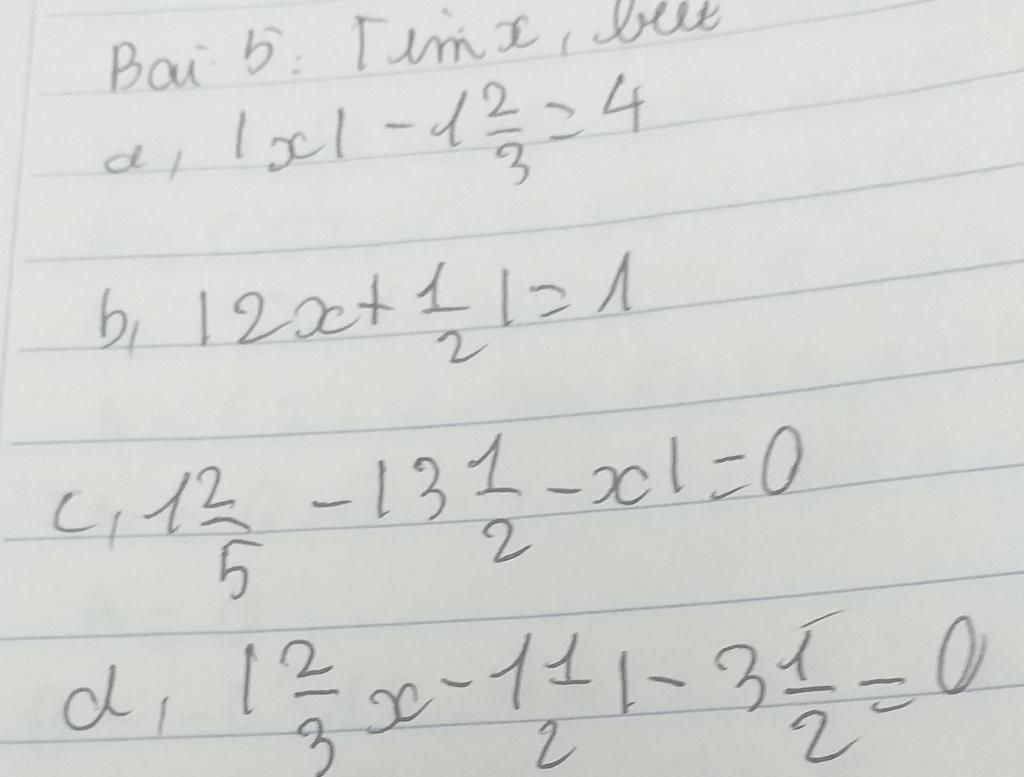 Bài 5: Tìm x, biết
a, |x| - 1 2/3 = 4
b, |2x + 1/2| = 1
c, 1 2/5 - |3 1/2 - x| = 0
d, |2/3 x - 1 1/2| - 3 1/2 = 0